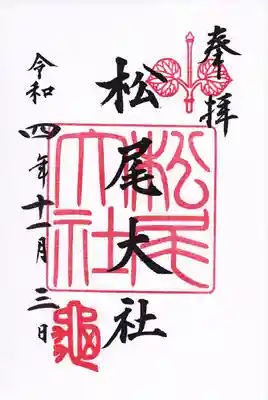 奉拝
松尾大社
松尾大社
令和四年十一月三日
亀